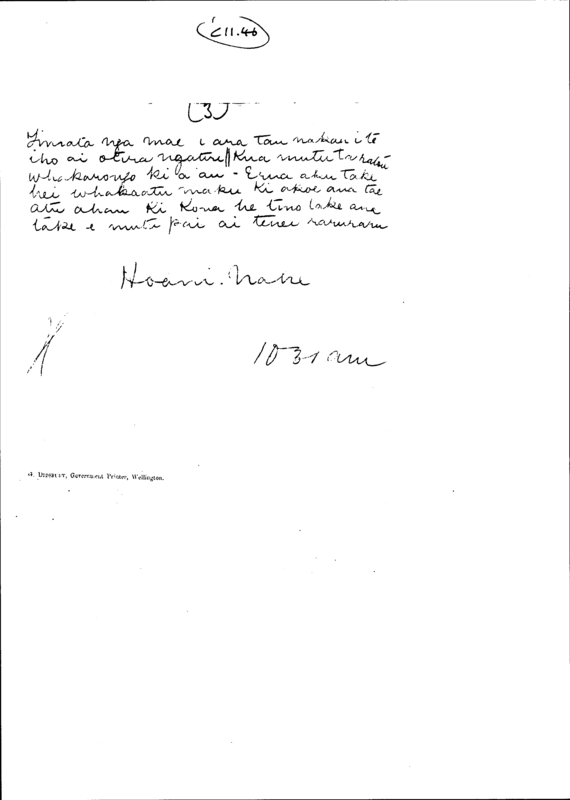 C11.46
(3)
nga mae i ara tau nakau i te
iho ai otira ngature // Kua mutu ta ratou
whakarongo ki a au - Erua aku take
hei whakaatu maku ki akoe ana tae
atu ahau Ki Kona he tino take ana
take e mutu pai ai tenei raruraru
Hoani. Nahe
10 31 am
G. DIDSBURY, Government Printer, Wellington.